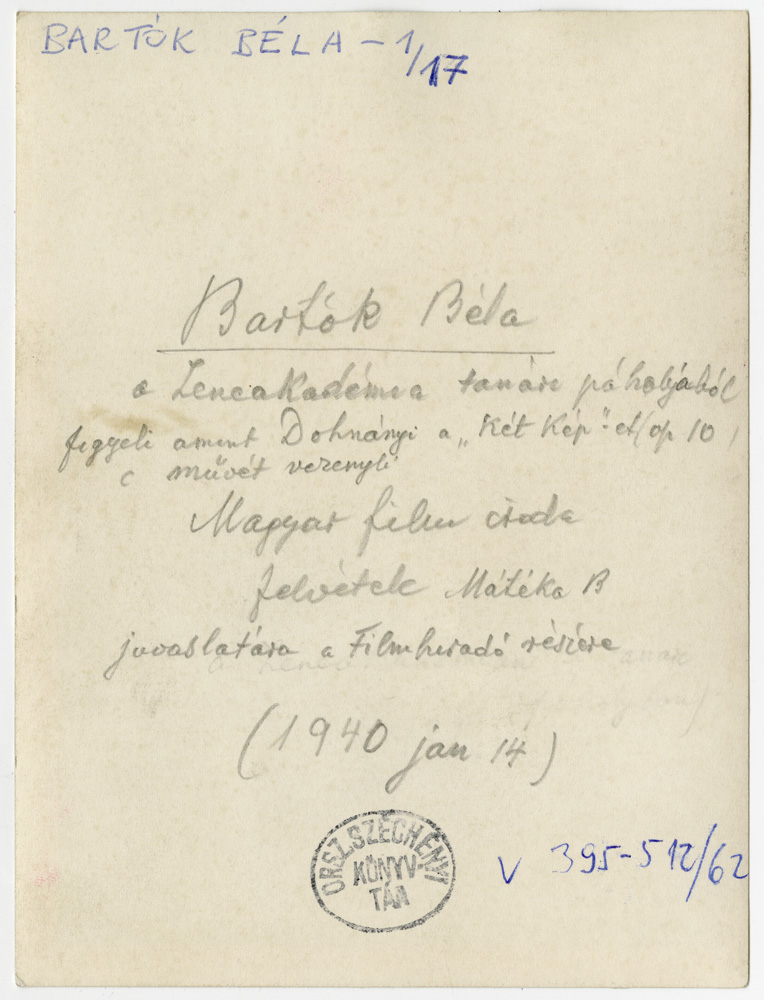 BARTÓK BÉLA - 1/17
Bartók Béla
a Zeneakadémia tanári páholyából
figyeli amint Dohnányi a „Két Kép"-et (op 10)
c művét vezényli
Magyar film iroda
felvétele Mátéka B
javaslatára a Filmhiradó részére
(1940 jan 14)
ORSZ. SZÉCHÉNYI
KÖNYV-
TÁR
V 395-512/62